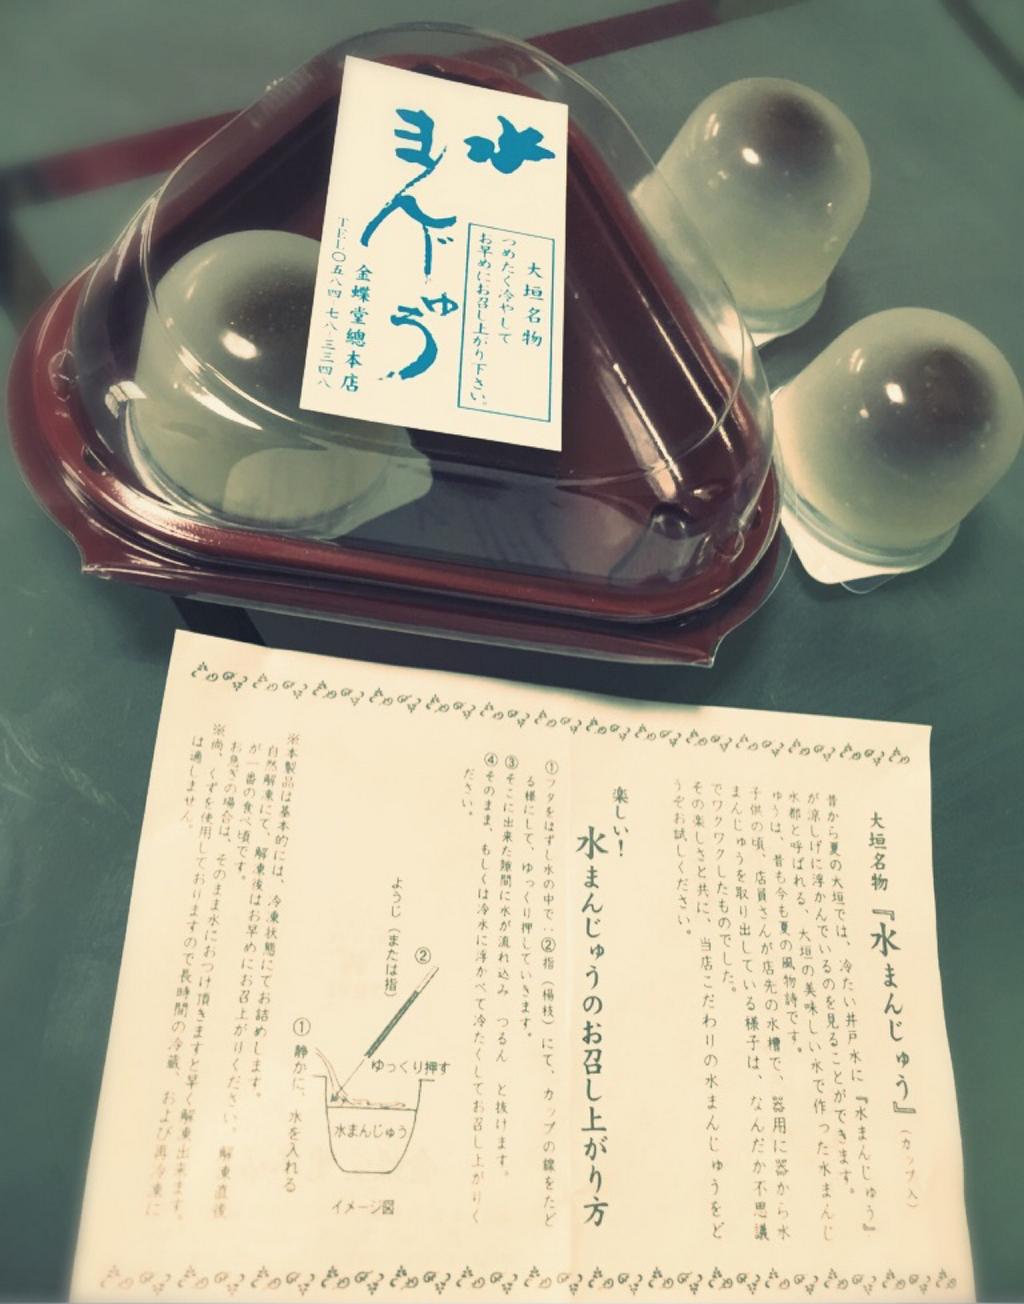 水
まんじゅう
大垣名物
つめたく冷やして
お早めにお召し上がり下さい。
金蝶堂總本店
TEL〇五八四 七八-三三四八
大垣名物『水まんじゅう』(カップ入)
昔から夏の大垣では、冷たい井戸水に『水まんじゅう』
が涼しげに浮かんでいるのを見ることができます。
水都と呼ばれる、大垣の美味しい水で作った水まんじ
ゅうは、昔も今も夏の風物詩です。
子供の頃、店員さんが店先の水槽で、器用に器から水
まんじゅうを取り出している様子は、なんだか不思議
でワクワクしたものでした。
その楽しさと共に、当店こだわりの水まんじゅうをど
うぞお試しください。
楽しい!
水まんじゅうのお召し上がり方
①フタをはずし水の中で‥②指(楊枝)にて、カップの縁をたど
る様にして、ゆっくり押していきます。
③そこに出来た隙間に水が流れ込み つるん と抜けます。
④そのまま、もしくは冷水に浮かべて冷たくしてお召し上がりく
ださい。
②
ようじ(または指)
ゆっくり押す
①静かに、水を入れる
水まんじゅう
イメージ図
※本製品は基本的には、冷凍状態にてお詰めします。
自然解凍にて、解凍後はお早めにお召上がりください。解凍直後
が一番の食べ頃です。
お急ぎの場合は、そのまま水におつけ頂きますと早く解凍出来ます。
※尚、くずを使用しておりますので長時間の冷蔵、および再冷凍に
は適しません。